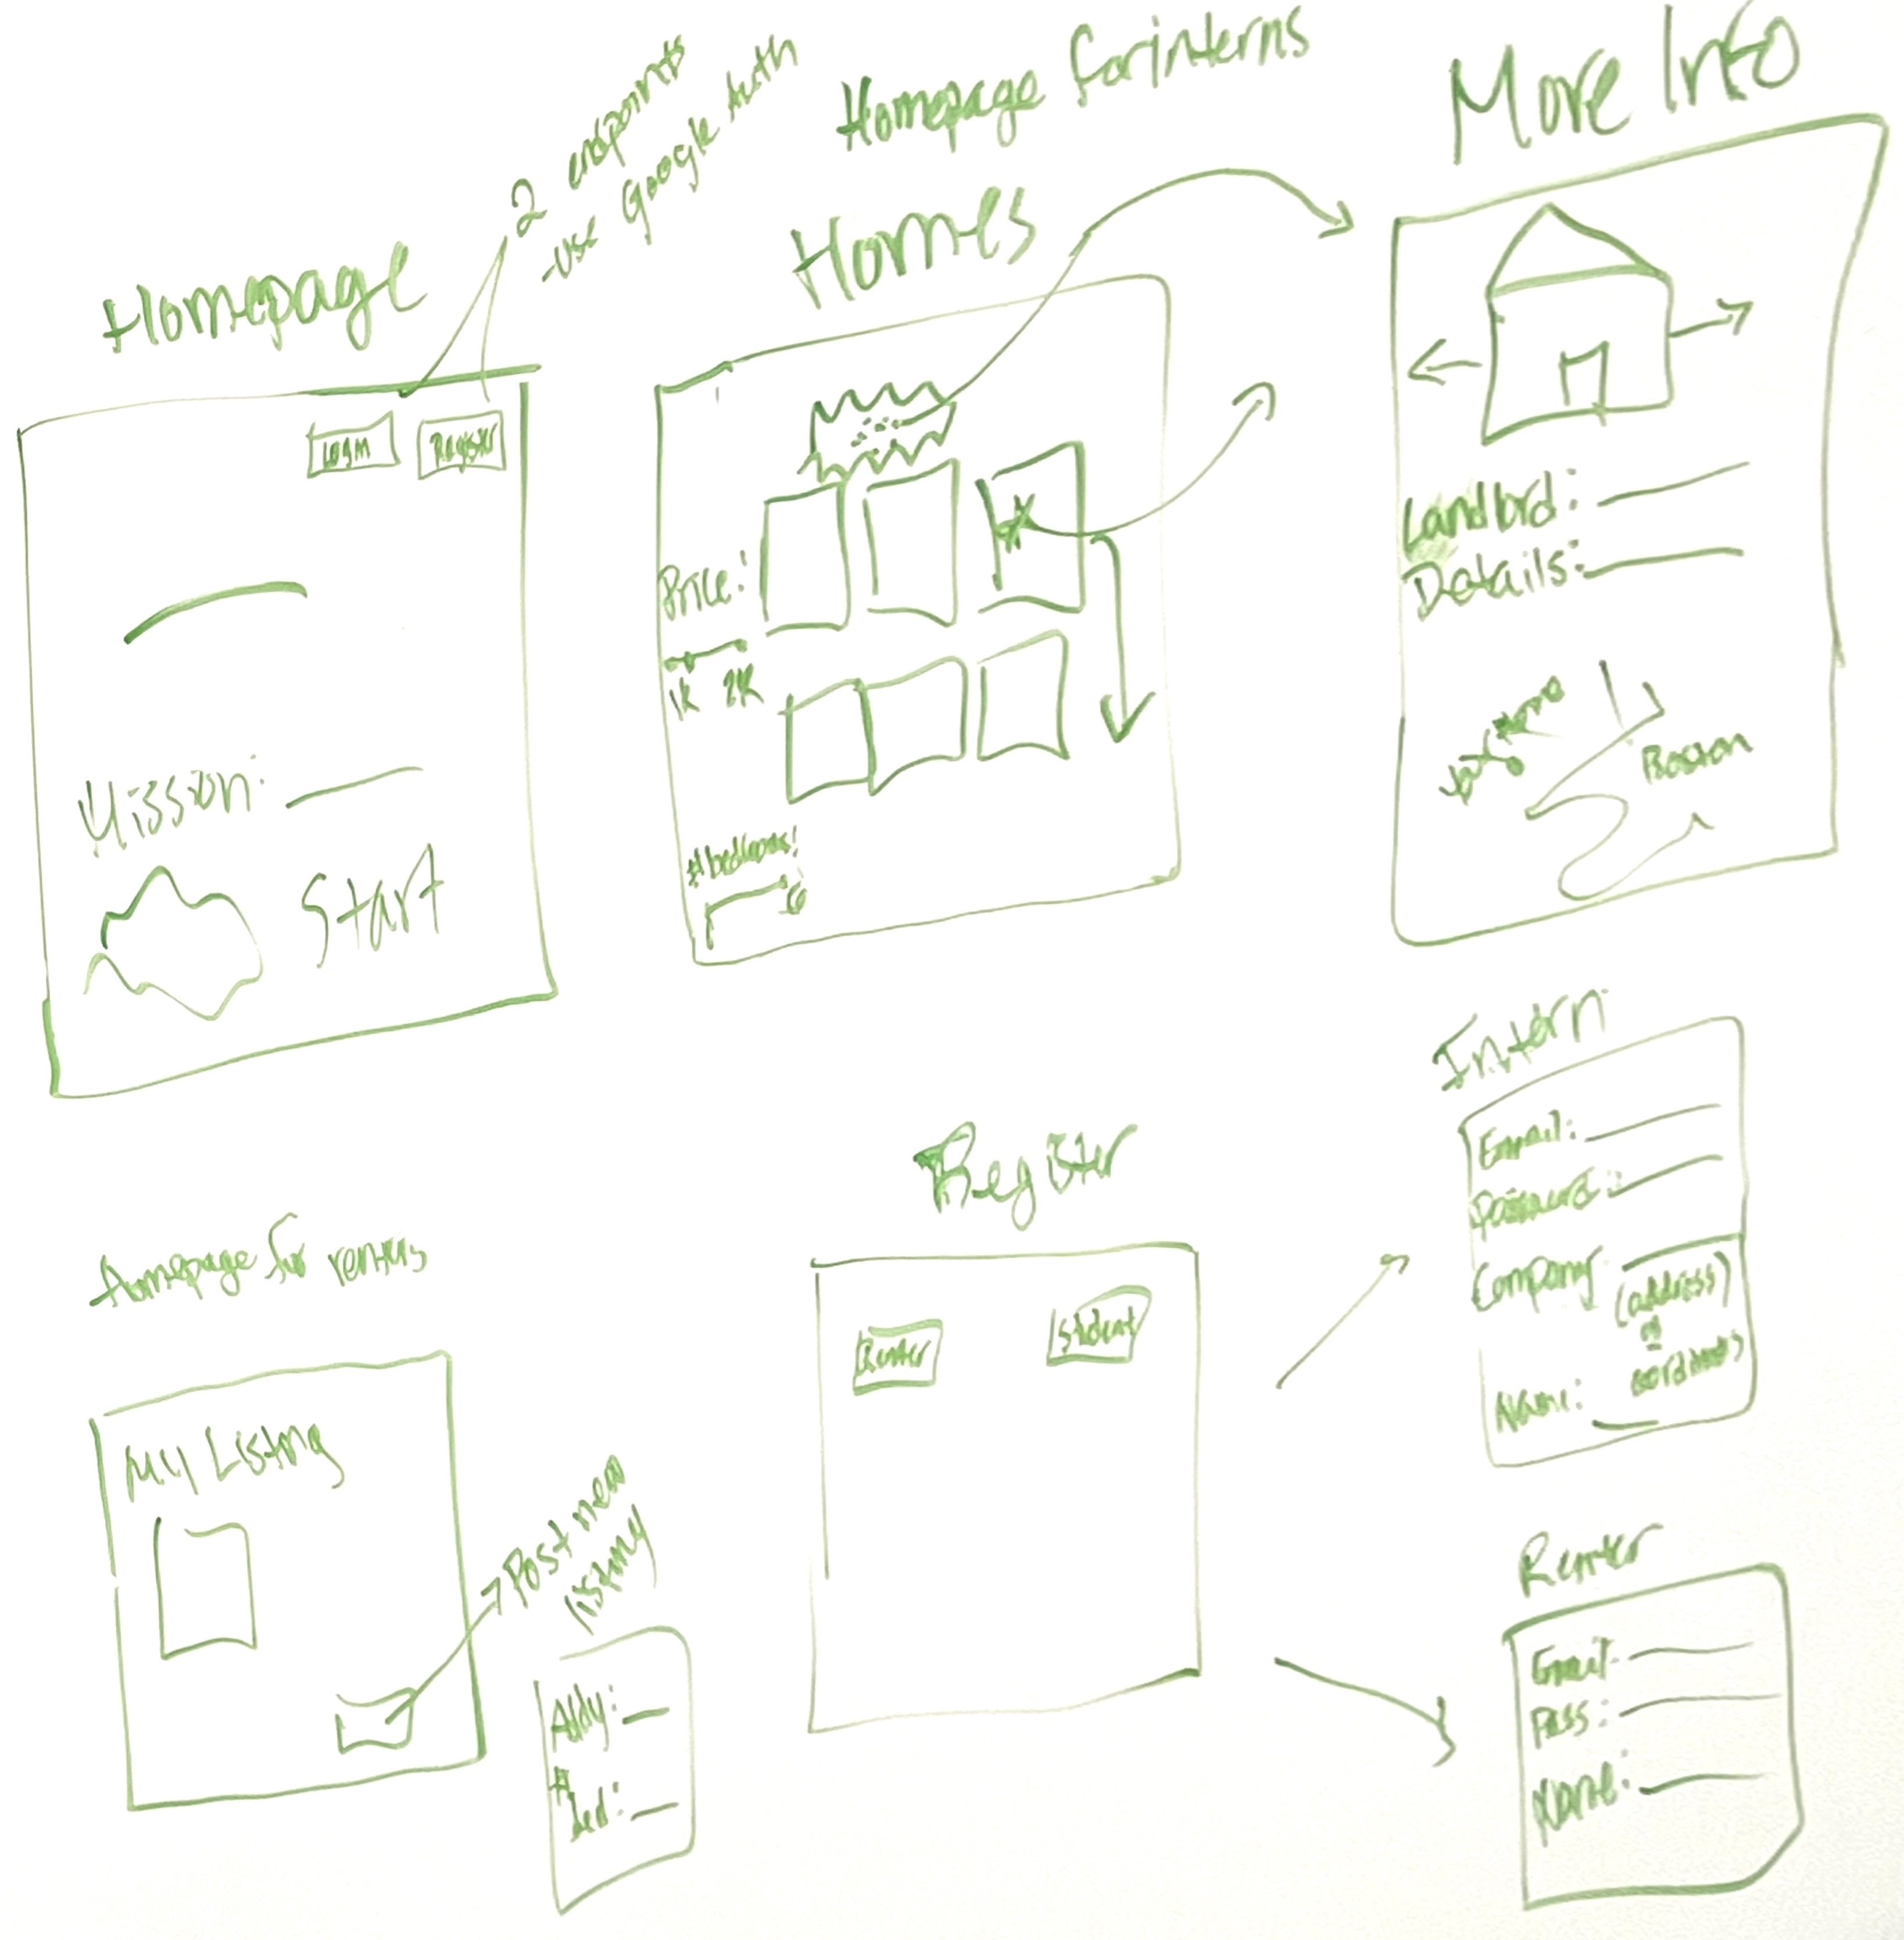 2 endpoints
-use Google Auth
Homepage
Login
Register
Mission:
Start
Homepage for interns
Homes
Price:
1K 2K
# bedrooms:
6
More Info
Landlord:
Details:
Boston
Homepage for renters
My Listing
Post new
listing
Addy:
#
bed:
Register
Renter
Student
Intern
Email:
Password:
Company
(address)
or
Name:
Renter
Email
Pass:
Name: